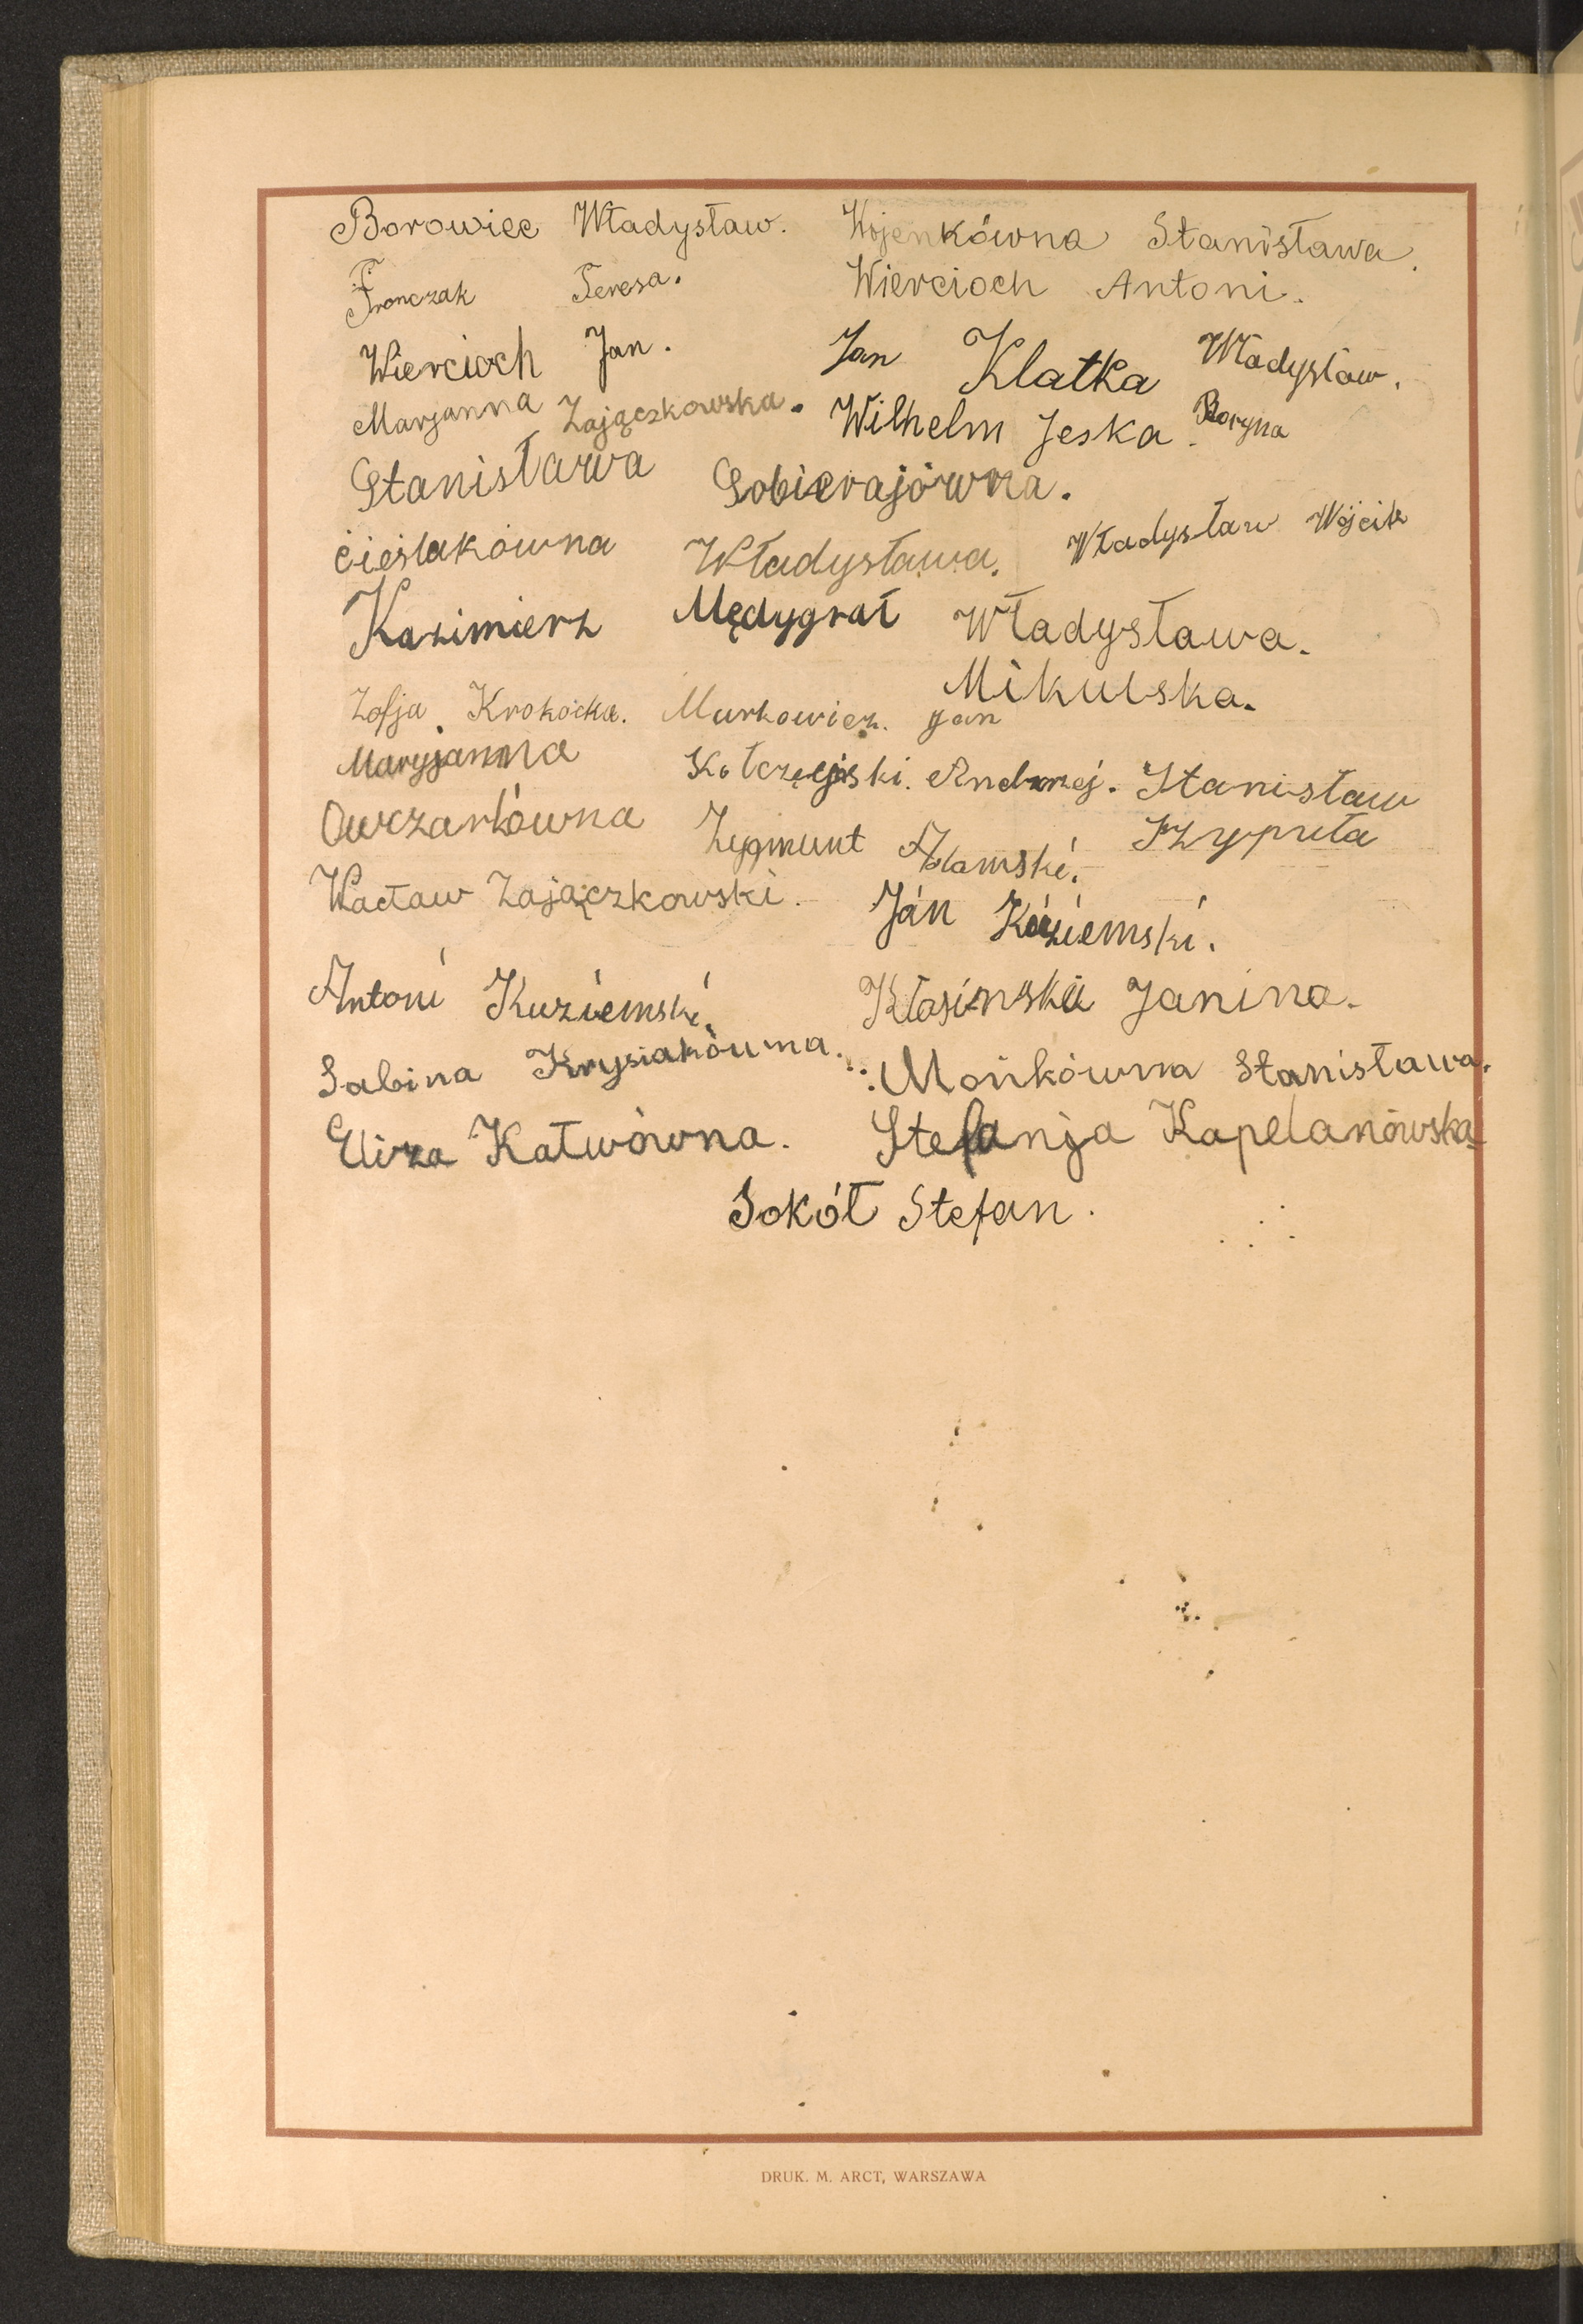 Borowiec Władysław. Wojenkówna Stanisława.
Fronczak Teresa. Wiercioch Antoni.
Wiercioch Jan. Jan Klatka Władysław.
Maryanna Zajączkowska. Wilhelm Jeska. Boryna
Stanisława Sobierajówna.
Cieślakówna Władysława. Władysław Wójcik
Kazimierz Mędygrał Władysława.
Zofja Krokocka. Murkowicz. Jan Mikulska.
Maryjanna Andrzej. Stanisław
Owczarkówna Zygmunt Adamski. Szyputa
Wacław Zajączkowski. Jan Kuziemski.
Antoni Kuziemski. Kłosińska Janina.
Sabina Krysiakówna. Mońkówna Stanisława.
Eliza Katwówna. Stefanja Kapelanówska
Sokół Stefan.
DRUK. M. ARCT, WARSZAWA